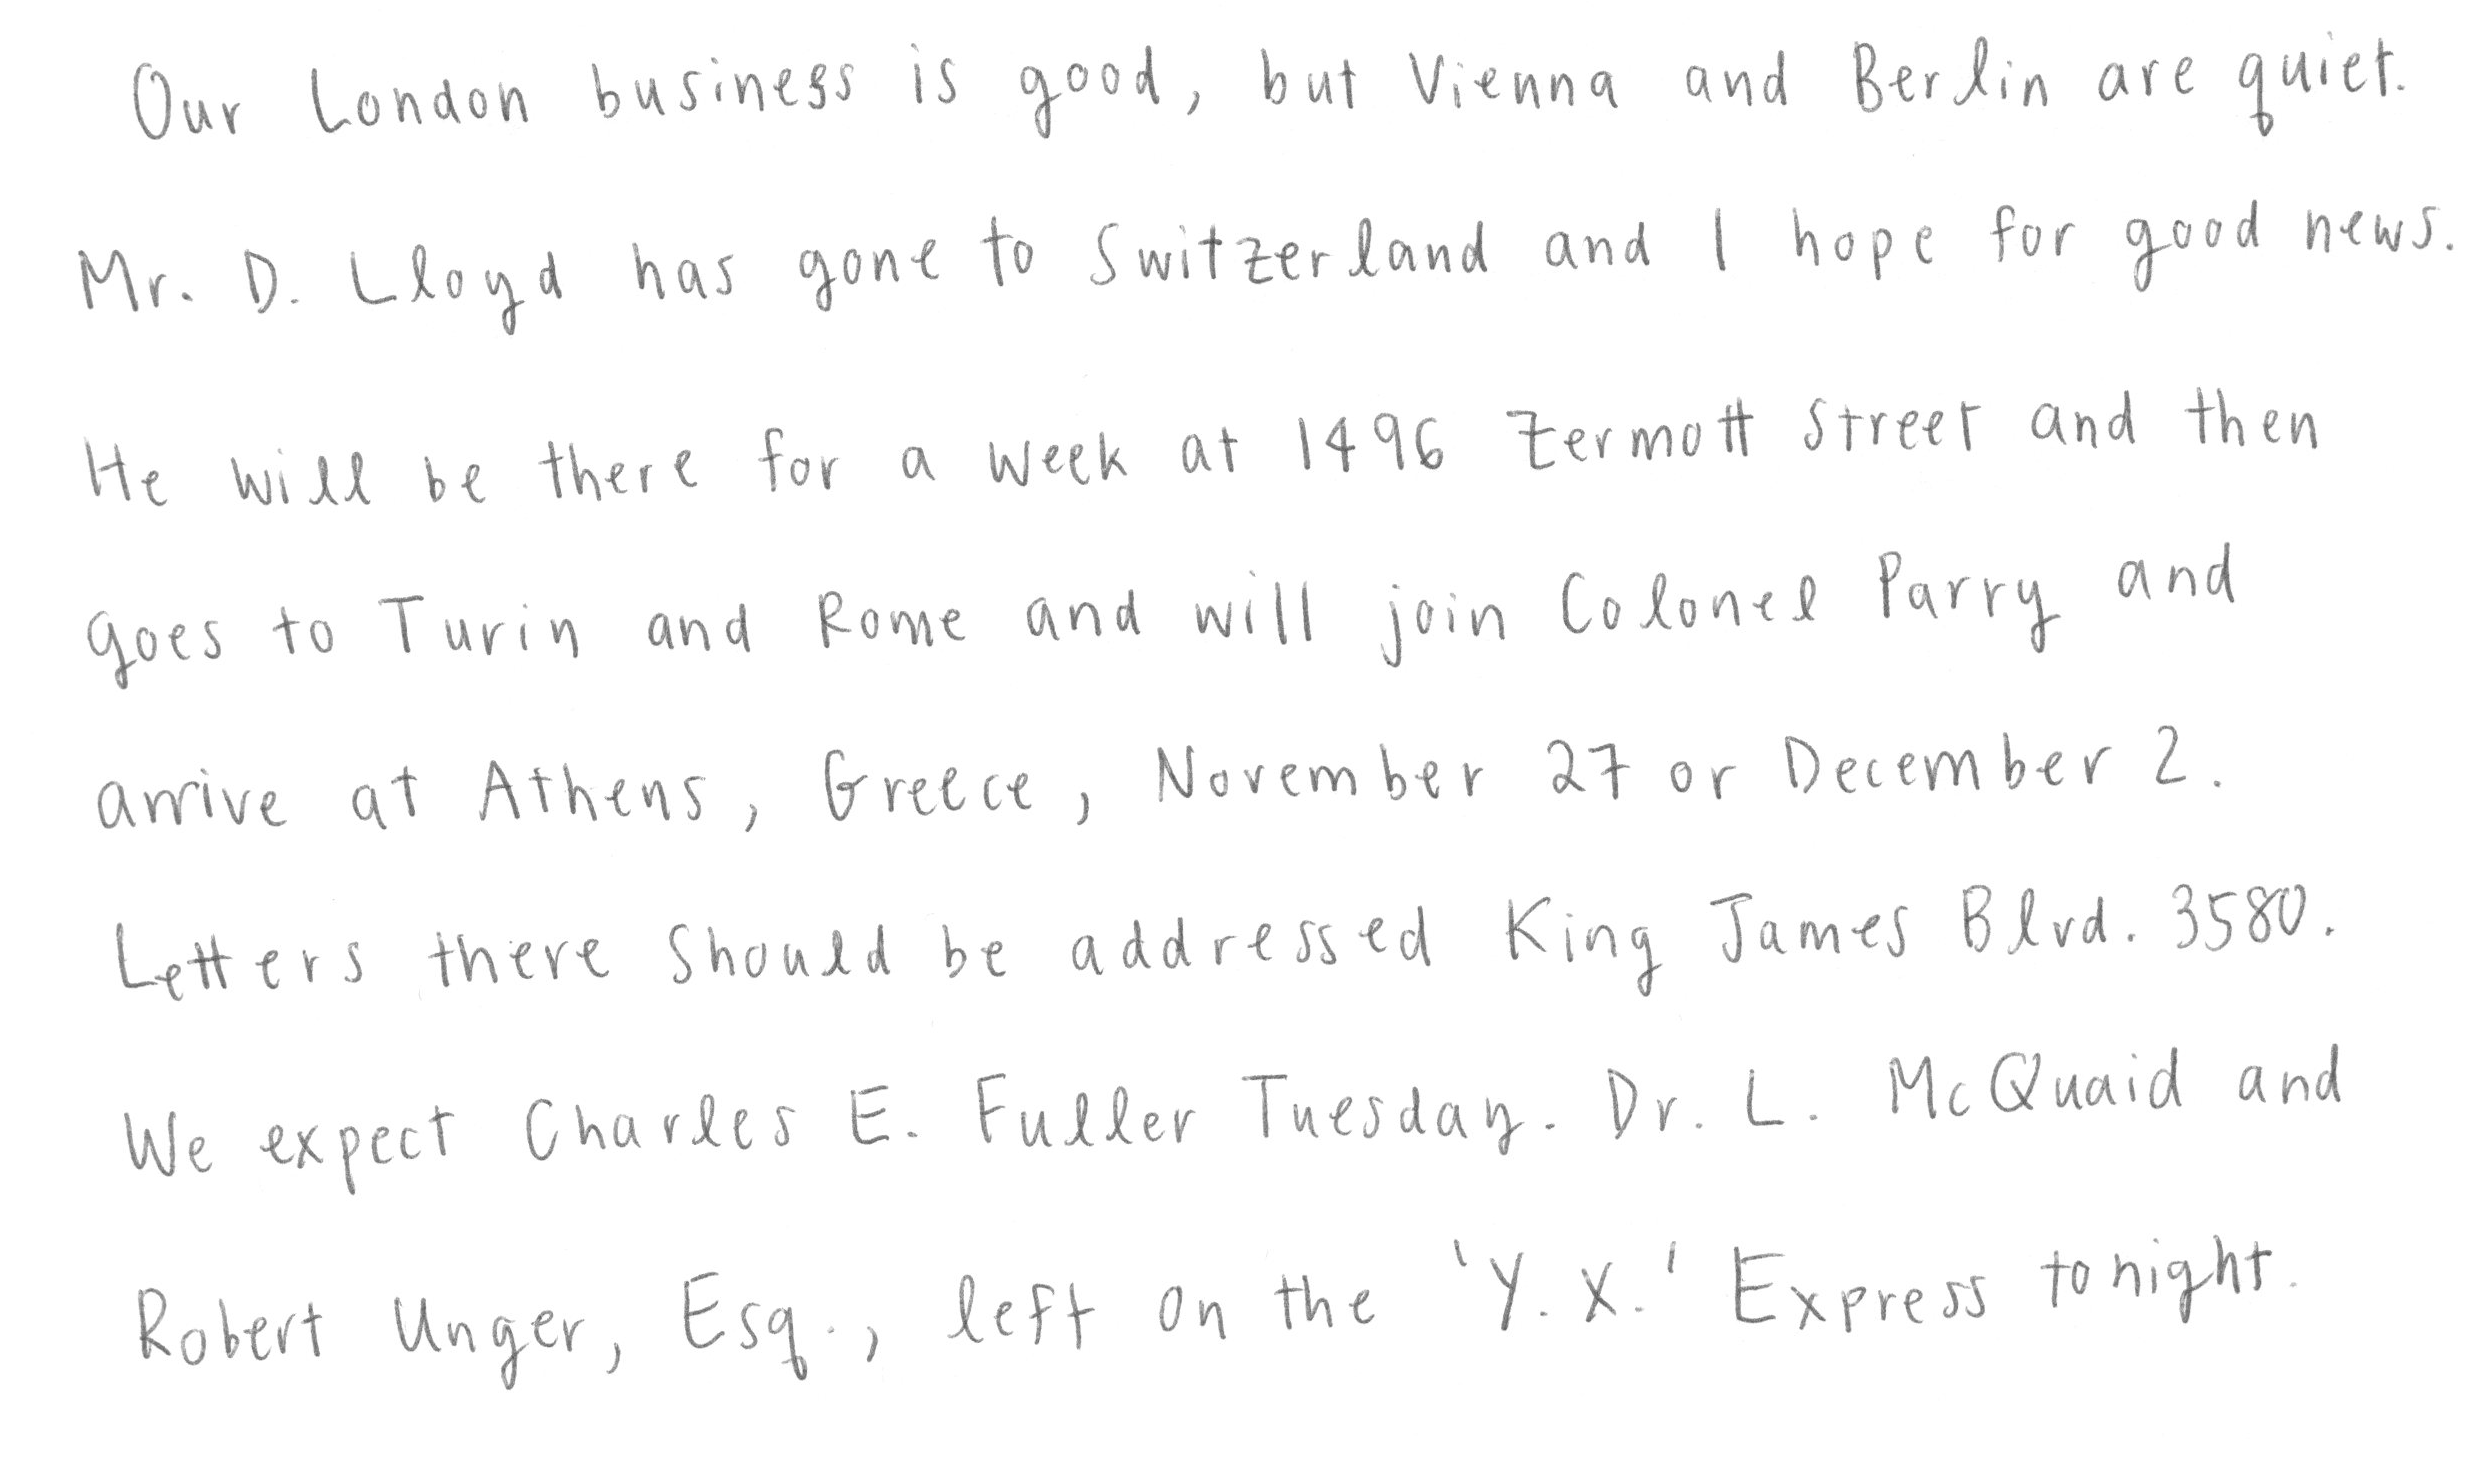 Our London business is good, but Vienna and Berlin are quiet.
Mr. D. Lloyd has gone to Switzerland and I hope for good news.
He will be there for a week at 1496 Zermott Street and then
goes to Turin and Rome and will join Colonel Parry and
arrive at Athens, Greece, November 27 or December 2.
Letters there should be addressed King James Blvd. 3580.
We expect Charles E. Fuller Tuesday. Dr. L. McQuaid and
Robert Unger, Esq., left on the 'Y. X.' Express tonight.